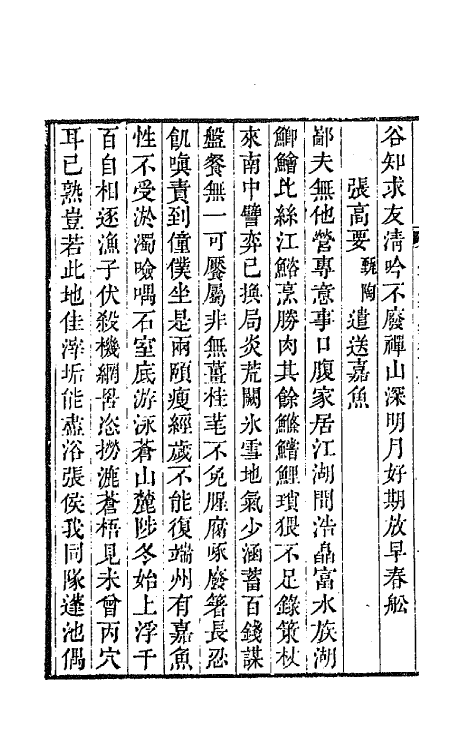 谷知求友清吟不廢禪山深明月好期放早春舩
張高要甄陶遣送嘉魚
鄙夫無他營專意事口腹家居江湖間浩皛富水族湖
鯽鱠比絲江鮥烹勝肉其餘鰷鱨鯉瑣猥不足錄策杖
來南中譬弈已換局炎荒闕氷雪地氣少涵蓄百錢謀
盤餐無一可饜屬非無薑桂芼不免腥腐啄廢箸長忍
飢嗔責到僮僕坐是兩頤瘦經歲不能復端州有嘉魚
性不受淤濁噞喁石室底游泳蒼山麓陟冬始上浮千
百自相逐漁子伏殺機網罟恣撈漉蒼梧見未曾丙穴
耳已熟豈若此地佳滓垢能盡浴張侯我同隊蓬池偶